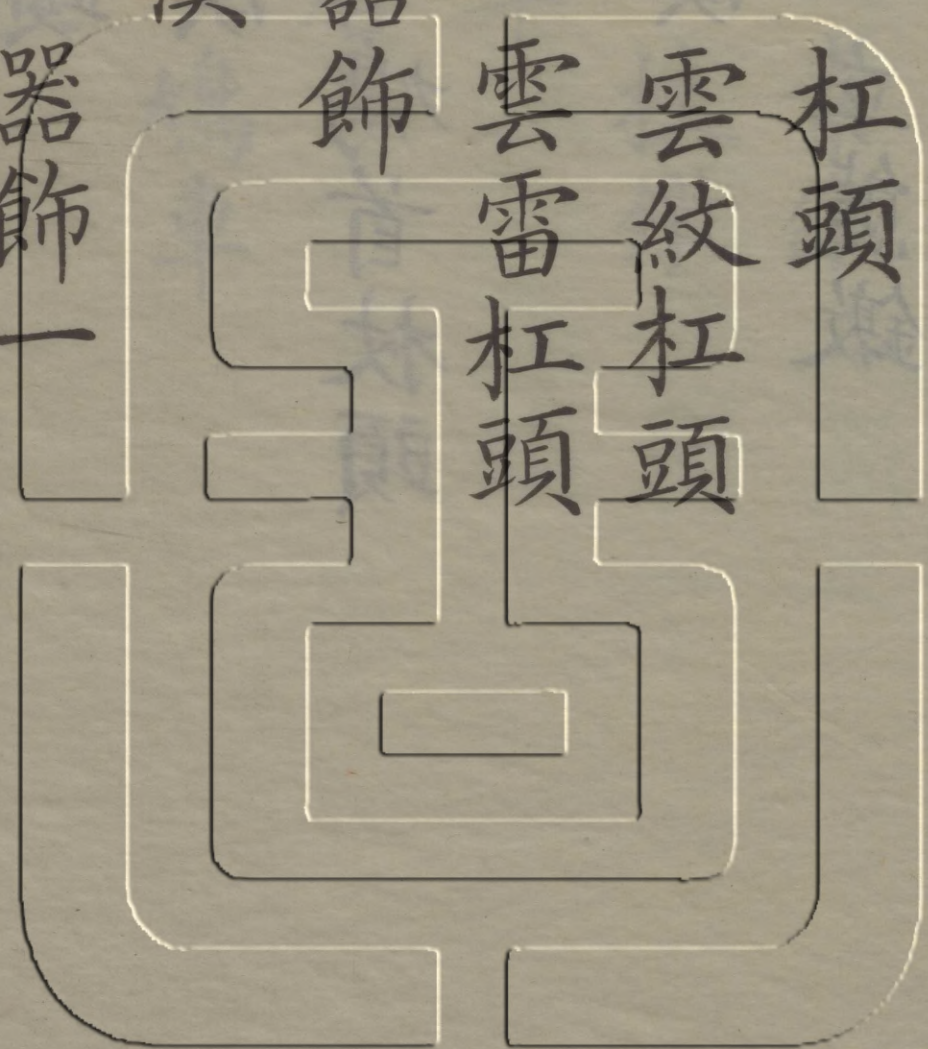 杠頭
雲紋杠頭
雲雷杠頭
器飾
漢
器飾一